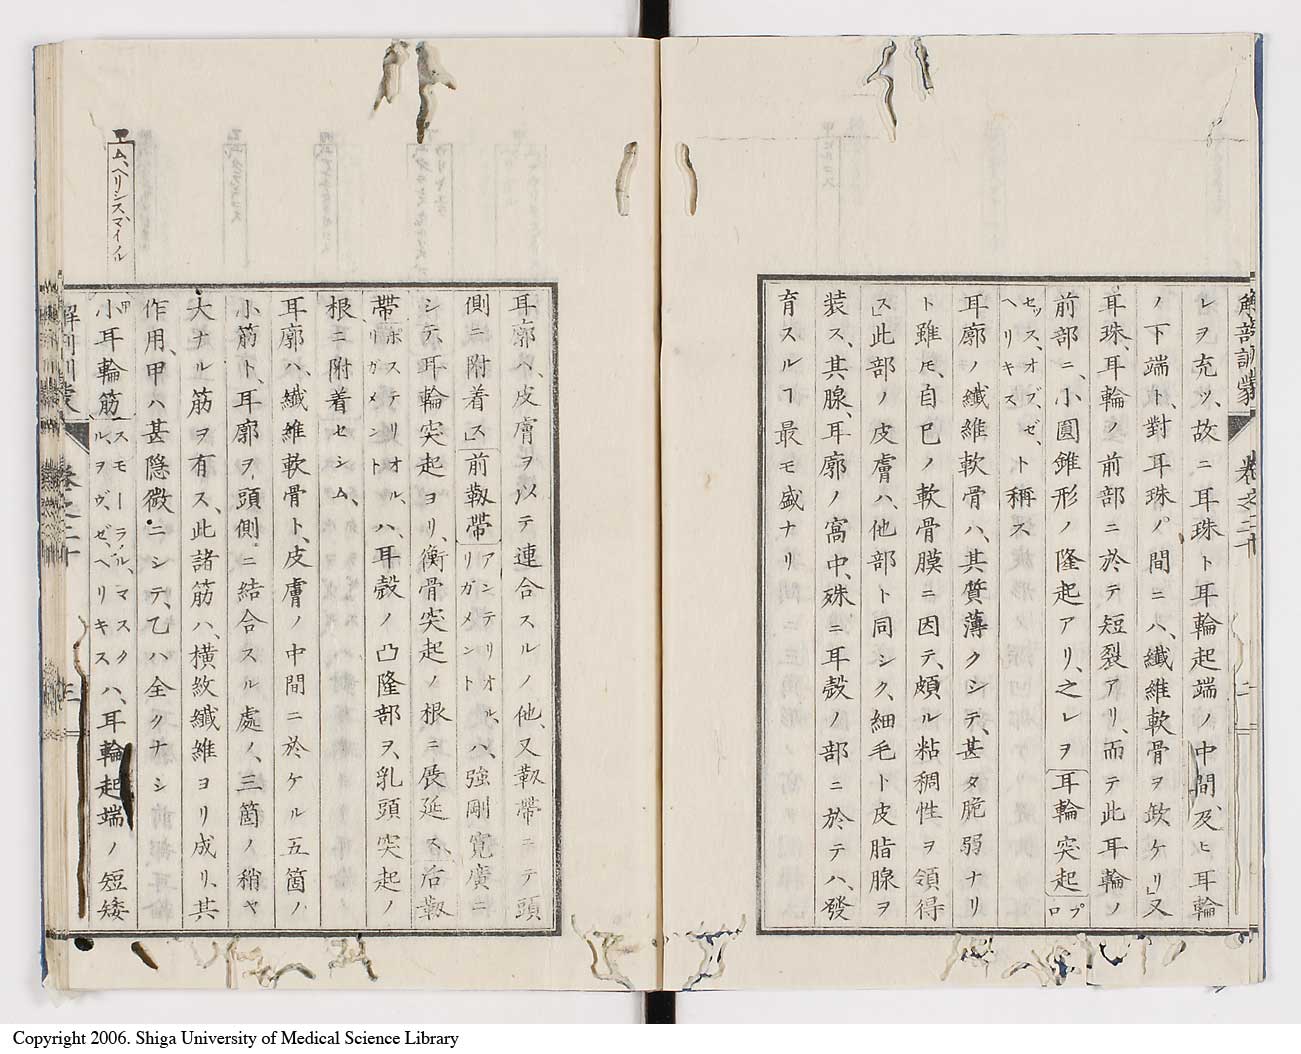 解剖訓蒙
卷之二十
二
レヲ充ツ、故ニ耳珠ト耳輪起端ノ中間、及ヒ耳輪
ノ下端ト、對耳珠ノ間ニハ、纖維軟骨ヲ缺ケリ」又
耳珠、耳輪ノ前部ニ於テ短裂アリ、而テ此耳輪ノ
前部ニ、小圓錐形ノ隆起アリ、之レヲ耳輪突起プロ
セッス、オブ、ゼ、ヘリキストト稱ス
耳廓ノ纖維軟骨ハ、其質薄クシテ、甚タ脆弱ナリ
ト雖モ、自己ノ軟骨膜ニ因テ、頗ル粘稠性ヲ領得
ス」此部ノ皮膚ハ、他部ト同シク、細毛ト皮脂腺ヲ
裝ス、其腺、耳廓ノ窩中、殊ニ耳殼ノ部ニ於テハ、發
育スルヿ最モ盛ナリ
耳廓ハ、皮膚ヲ以テ連合スルノ他、又靱帶ニテ頭
側ニ附着ス」前靱帶アンテリオル、リガメントハ、強剛寛廣ニ
シテ、耳輪突起ヨリ、衡骨突起ノ根ニ展延ス、后靱
帶ポステリオル、リガメントハ、耳殼ノ凸隆部ヲ、乳頭突起ノ
根ニ附着セシム、
耳廓ハ、纖維軟骨ト、皮膚ノ中間ニ於ケル五箇ノ
小筋ト、耳廓ヲ頭側ニ結合スル處ノ、三箇ノ稍ヤ
大ナル筋ヲ有ス、此諸筋ハ、橫紋纖維ヨリ成リ、其
作用、甲ハ甚隱微ニシテ、乙ハ全クナシ
甲小耳輪筋スモーラル、マスクル、ヲヴ、ゼ、ヘリキスハ、耳輪起端ノ短矮
ム、ヘリシスマイノル
解剖訓蒙
卷之二十
三
Copyright 2006. Shiga University of Medical Science Library